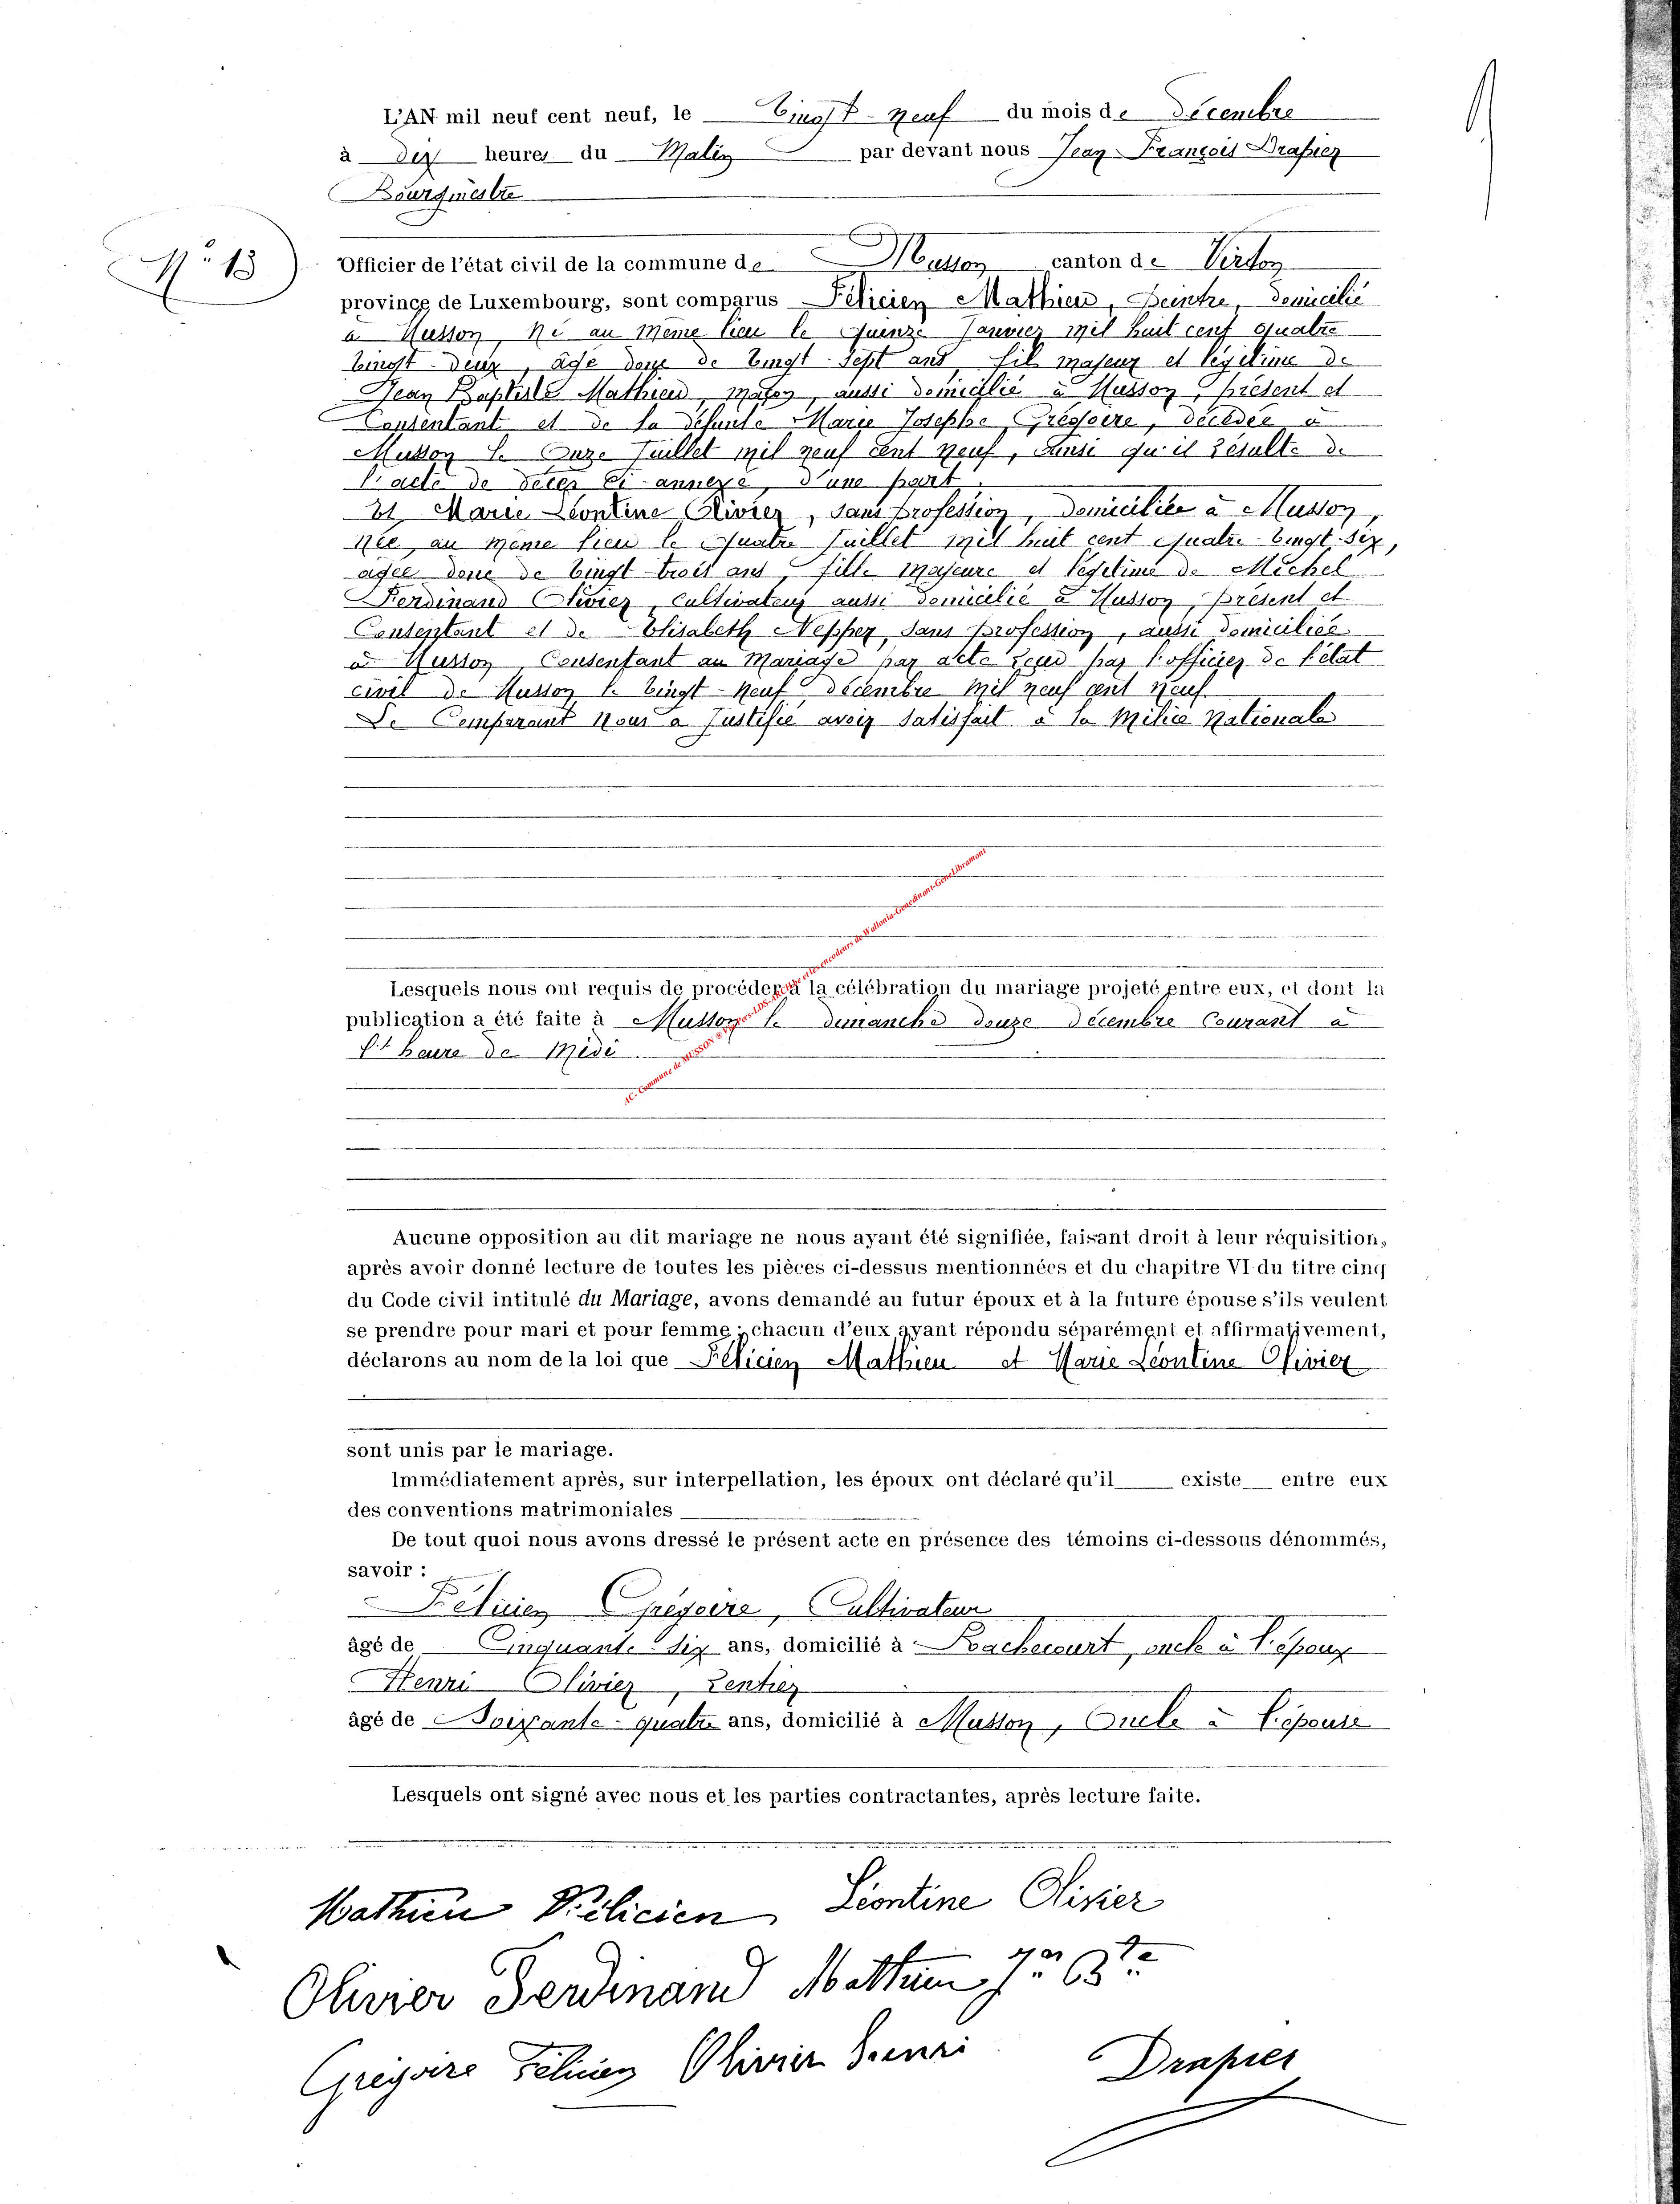 L'AN mil neuf cent neuf, le Vingt-neuf du mois de Décembre
à dix heures du Matin par devant nous Jean François Drapier
Bourgmestre
N° 13
Officier de l'état civil de la commune de Musson canton de Virton
province de Luxembourg, sont comparus Félicien Mathieu, Peintre, domicilié
à Musson, Né au même lieu le Quinze Janvier mil huit cent quatre
vingt-deux, âgé donc de vingt-sept ans, fils majeur et légitime de
Jean Baptiste Mathieu, maçon, aussi domicilié à Musson, présent et
Consentant et de la défunte Marie Josèphe Grégoire, décédée à
Musson le Onze Juillet mil neuf cent neuf, ainsi qu'il résulte de
l'acte de décès ci-annexé, d'une part.
Et Marie Léontine Olivier, sans profession, domiciliée à Musson,
née, au même lieu le Quatre Juillet mil huit cent quatre-vingt-six,
âgée donc de vingt-trois ans, fille majeure et légitime de Michel
Ferdinand Olivier, cultivateur aussi domicilié à Musson, présent et
Consentant et de Elisabeth Nepper, sans profession, aussi domiciliée
à Musson, Consentant au Mariage par acte reçu par l'officier de l'état
civil de Musson le vingt-neuf décembre mil neuf cent neuf.
Le Comparant nous a justifié avoir satisfait à la Milice Nationale
Lesquels nous ont requis de procéder à la célébration du mariage projeté entre eux, et dont la
publication a été faite à Musson le dimanche douze décembre Courant à
l'heure de Midi
Aucune opposition au dit mariage ne nous ayant été signifiée, faisant droit à leur réquisition,
après avoir donné lecture de toutes les pièces ci-dessus mentionnées et du chapitre VI du titre cinq
du Code civil intitulé du Mariage, avons demandé au futur époux et à la future épouse s'ils veulent
se prendre pour mari et pour femme ; chacun d'eux ayant répondu séparément et affirmativement,
déclarons au nom de la loi que Félicien Mathieu et Marie Léontine Olivier
sont unis par le mariage.
Immédiatement après, sur interpellation, les époux ont déclaré qu'il existe entre eux
des conventions matrimoniales
De tout quoi nous avons dressé le présent acte en présence des témoins ci-dessous dénommés,
savoir :
Félicien Grégoire, Cultivateur
âgé de Cinquante-six ans, domicilié à Rachecourt, oncle à l'époux
Henri Olivier, Rentier
âgé de Soixante-quatre ans, domicilié à Musson, Oncle à l'épouse
Lesquels ont signé avec nous et les parties contractantes, après lecture faite.
Mathieu Félicien Léontine Olivier
Olivier Ferdinand Mathieu Jn Bte
Grégoire Félicien Olivier Henri Drapier